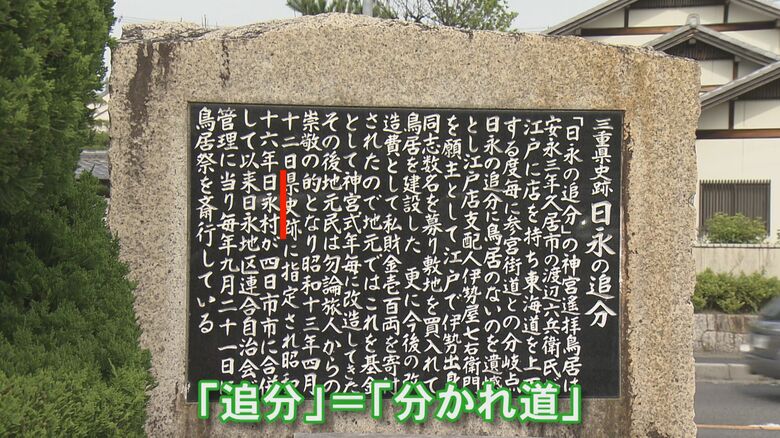 三重県史跡 日永の追分
「日永の追分」の神宮遙拝鳥居は
安永三年久居市の渡辺六兵衛氏が
江戸に店を持ち東海道を上下
する度毎に参宮街道との分岐点
日永の追分に鳥居のないのを遺憾
とし江戸店支配人伊勢屋七右衛門
を願主として江戸で伊勢出身
同志数名を募り敷地を買入れて
鳥居を建設した 更に今後の改
造費として私財金壱百両を寄付
されたので地元ではこれを基金
として神宮式年毎に改造してきた
その後地元民は勿論旅人からの
崇敬の的となり昭和十三年四月
十二日県史跡に指定され昭和
十六年日永村が四日市市に合併
して以来日永地区連合自治会
管理に当り毎年九月二十一日
鳥居祭を斎行している
「追分」=「分かれ道」